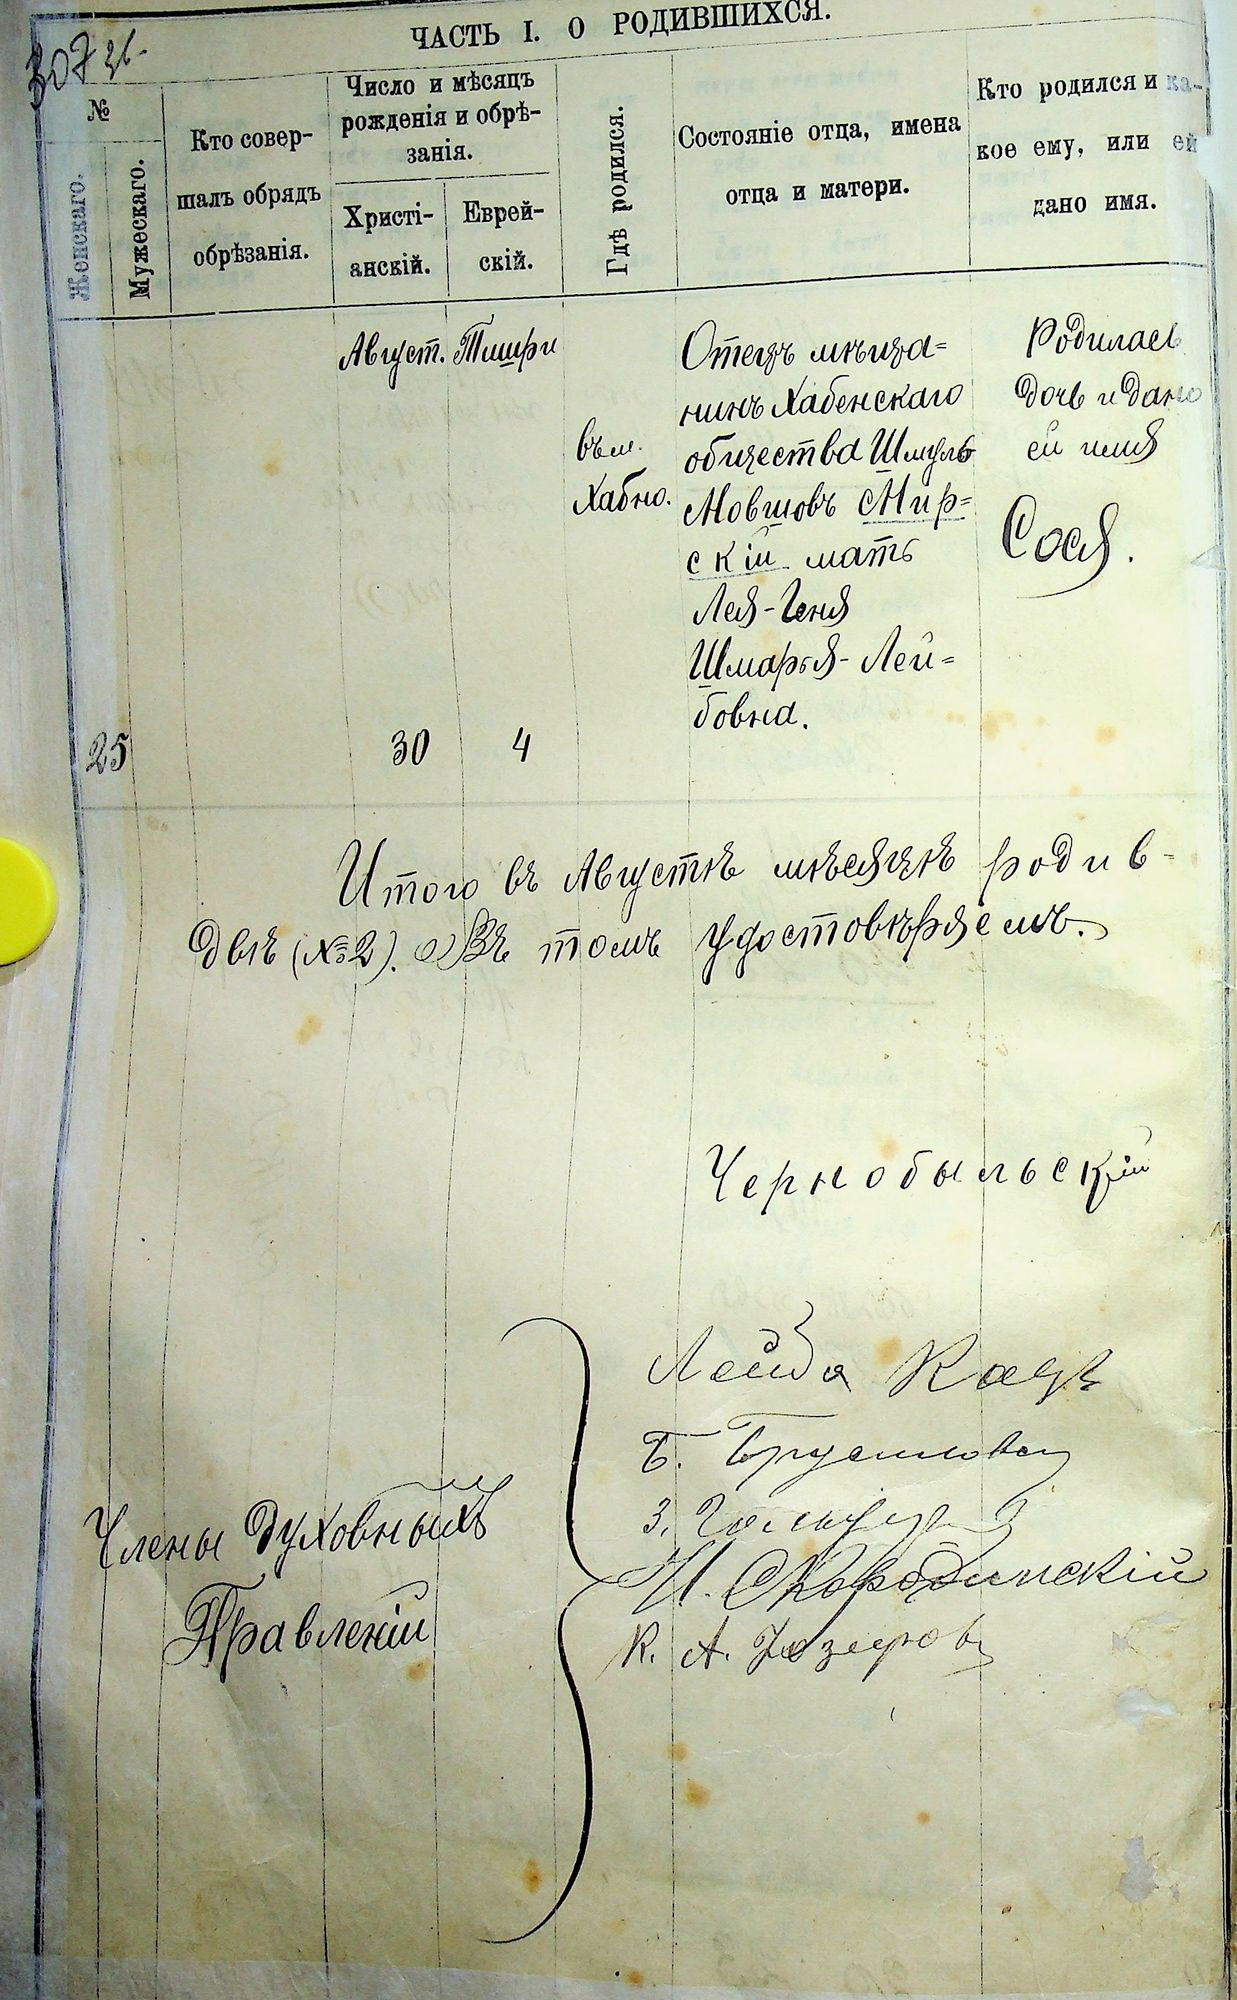 307 зв.
ЧАСТЬ I. О РОДИВШИХСЯ.
№
Женскаго.
Мужескаго.
Кто совер-
шалъ обрядъ
обрѣзанія.
Число и мѣсяцъ
рожденія и обрѣ-
занія.
Христі-
анскій.
Еврей-
скій.
Гдѣ родился.
Состояніе отца, имена
отца и матери.
Кто родился и ка-
кое ему, или ей
дано имя.
25
Август.
30
Тишри
4
въ м.
Хабно.
Отецъ мѣща=
нинъ Хабенскаго
общества Шмуль
Мовшовъ Мир=
скій мать
Лея-Геня
Шмарья-Лей=
бовна.
Родилась
дочь и дано
ей имя
Сося.
Итого въ Августѣ мѣсяцѣ родив-
двѣ (№ 2). Въ томъ удостовѣряемъ.
Чернобыльскій
Члены Духовныхъ
Правленій
Лейба Кацъ
Б.
З.
И. Скородинскій
К. А.